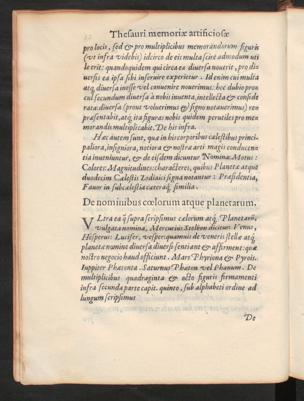 Thesauri memoriæ artificiosæ
pro locis, sed & pro multiplicibus memorandorum figuris
(vt infra videbis) idcirco de eis multa scire admodum vti
le erit: quandoquidem qui circa ea diuersa nouerit, pro di
uersis ea ipsa sibi inseruire experietur. Id enim cui multa
atq; diuersa inesse vel conuenire nouerimus: hoc dubio pro
cul secundum diuersa à nobis inuenta, intellecta & conside
rata: diuersa (prout voluerimus & signo notauerimus) rep
præsentabit, atq; ita figuras nobis quidem perutiles pro me
morandis multiplicabit. De his infra.
Hæc autem sunt, quæ in his corporibus cælestibus princi-
paliora, insigniora, notiora & nostræ arti magis conducen
tia inueniuntur, & de eisdem dicuntur Nomina: Motus:
Colores: Magnitudines: characteres, quibus Planetæ atque
duodecim Cælestis Zodiaci signa notantur: Præsidentia,
Fauor in subcælestia cæteraq; similia.
De nominibus cœlorum atque planetarum.
VLtra ea quæ supra scripsimus cælorum atq; Planetarũ,
vulgata nomina, Mercurius Stelbon dicitur. Venus,
Hesperus: Lucifer, vesperquamuis de veneris stella atq;
planeta nomine diuersa diuersi sentiant & affirment: quæ
nostro negocio haud officiunt. Mars Phyriona & Pyrois.
Iuppiter Phætonta. Saturnus Phæton vel Phænon. De
multiplicibus quadraginta & octo figuris firmamenti
infra secunda parte capit. quinto, sub alphabeti ordine ad
lungum scripsimus
De